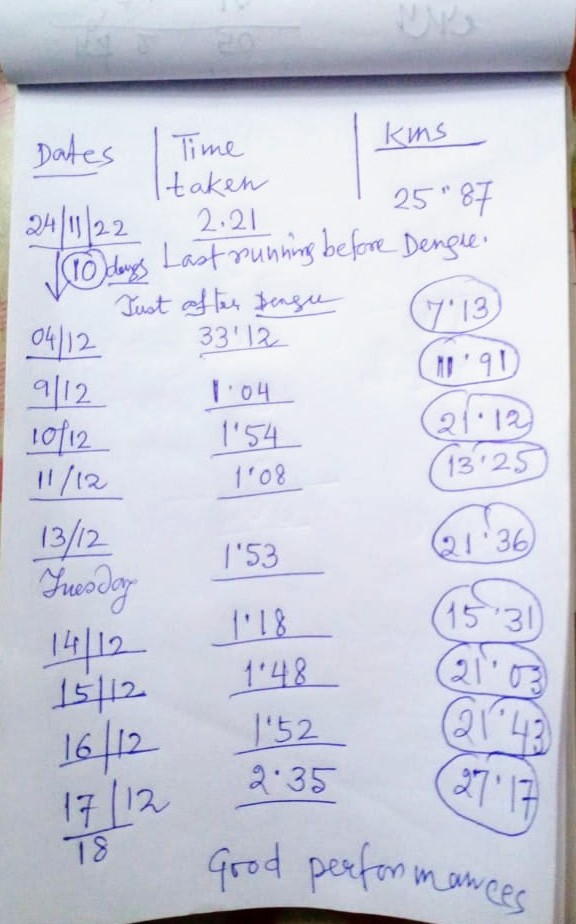 Dates | Time taken | Kms
24/11/22 2.21 25"87
10 days Last running before Dengue.
Just after Dengue
04/12 33'12 7'13
9/12 1.04 11'91
10/12 1'54 21.12
11/12 1'08 13'25
13/12 1'53 21'36
Tuesday
14/12 1'18 15'31
15/12 1'48 21'03
16/12 1'52 21'43
17/12 2.35 27'17
18
Good performances